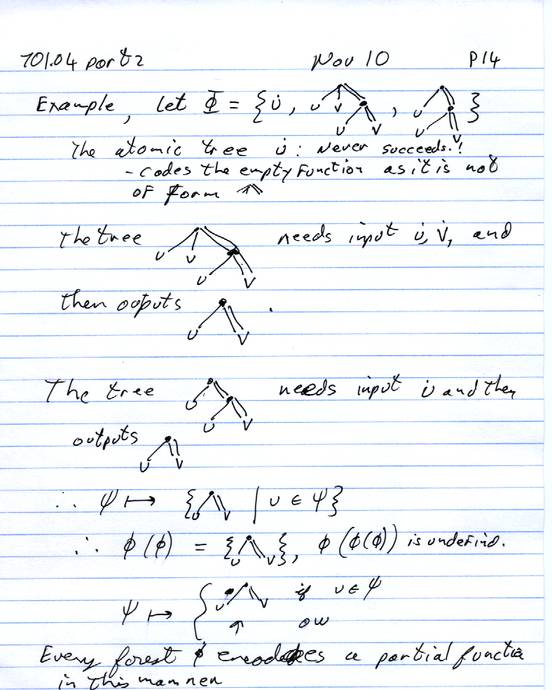 701.04 part 2 Nov 10 P14
Example, let Φ = {u̇, u v u v, u u v}
The atomic tree u̇: Never succeeds!!
- codes the empty function as it is not
of form
The tree u v u v needs input u̇, v̇, and
then outputs u v.
The tree u u v needs input u̇ and then
outputs u v
∴ ψ ↦ {u v | u ∈ ψ}
∴ ϕ(ϕ) = {u v}, ϕ(ϕ(ϕ)) is undefind.
ψ ↦ { u v if u ∈ ψ
↑ ow
Every forest ϕ encodes a partial functio
in this manner